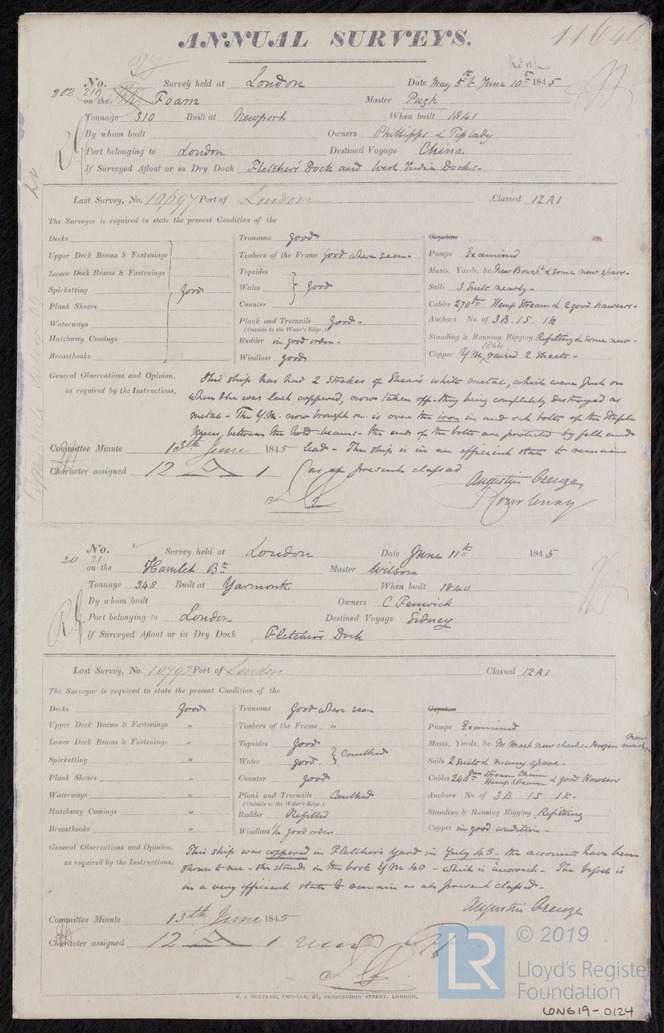 ANNUAL SURVEYS.
11640
202 No. 219 Survey held at London Date May 5th & June 10th 1845
on the Foam Master Pugh
Tonnage 310 Built at Newport When built 1841
By whom built Owners Phillipps & Tiplady
Port belonging to London Destined Voyage China
If Surveyed Afloat or in Dry Dock Fletchers Dock and West India Docks.
Last Survey, No. 10,697 Port of London Classed 12 A 1
The Surveyor is required to state the present Condition of the
Decks Transoms good
Upper Deck Beams & Fastenings Timbers of the Frame good where seen. Pumps Examined
Lower Deck Beams & Fastenings Topsides Masts, Yards, &c. New Bowspt & some new spars.
Spirketting good Wales good Sails 3 Suits nearly.
Plank Shears Counter Cables 270 fms Hemp Stream & 2 good hawsers.
Waterways Plank and Treenails good. Anchors No. of 3 B 1 S 1 K
(Outside to the Water's Edge.)
Hatchway Comings Rudder in good order. Standing & Running Rigging Refitting & some new.
Breasthooks Windlass good Copper Y.M. 1844 raised 2 Sheets.
General Observations and Opinion, This ship has had 2 strakes of white metal, which were put on
as required by the Instructions, when she was last coppered, now taken off they being completely destroyed as
metal. The Y.M. now brought on is over the iron in and out bolts of the Staple
Knees, between the hold beams. the ends of the bolts are protected by felt and
Committee Minute 13th June 1845 lead. The ship is in an efficient state to remain
Character assigned 12 A 1 as at present classed
Augustin Creuze
F Courtenay
20 No. 21 Survey held at London Date June 11th 1845
on the Hamlet Bk Master Wilson
Tonnage 248 Built at Yarmouth When built 1840
By whom built Owners C. Fenwick
Port belonging to London Destined Voyage Sidney
If Surveyed Afloat or in Dry Dock Fletchers Dock
Last Survey, No. 10797 Port of London Classed 12 A 1
The Surveyor is required to state the present Condition of the
Decks good Transoms good where seen
Upper Deck Beams & Fastenings " Timbers of the Frame " Pumps Examined
Lower Deck Beams & Fastenings " Topsides good Masts, Yards, &c. M Mast new cheeks new nearly
Spirketting " Wales good Caulked Sails 2 Suits & many spare.
Plank Shears " Counter good Cables 240 fms Stream Chain Hemp Stream & good Hawsers
Waterways " Plank and Treenails Caulked Anchors No. of 3 B 1 S 1 K.
(Outside to the Water's Edge.)
Hatchway Comings " Rudder Refitted Standing & Running Rigging Refitting
Breasthooks " Windlass in good order Copper in good condition.
General Observations and Opinion, This ship was coppered in Fletchers Yard in July 43. the accounts have been
as required by the Instructions, shown to me. she stands in the book Y.M. 40 - which is incorrect. The vessel is
in a very efficient state to remain as at present classed.
Augustin Creuze
Committee Minute 13th June 1845
Character assigned 12 A 1
LR
© 2019
Lloyd's Register
Foundation
LON619-0124